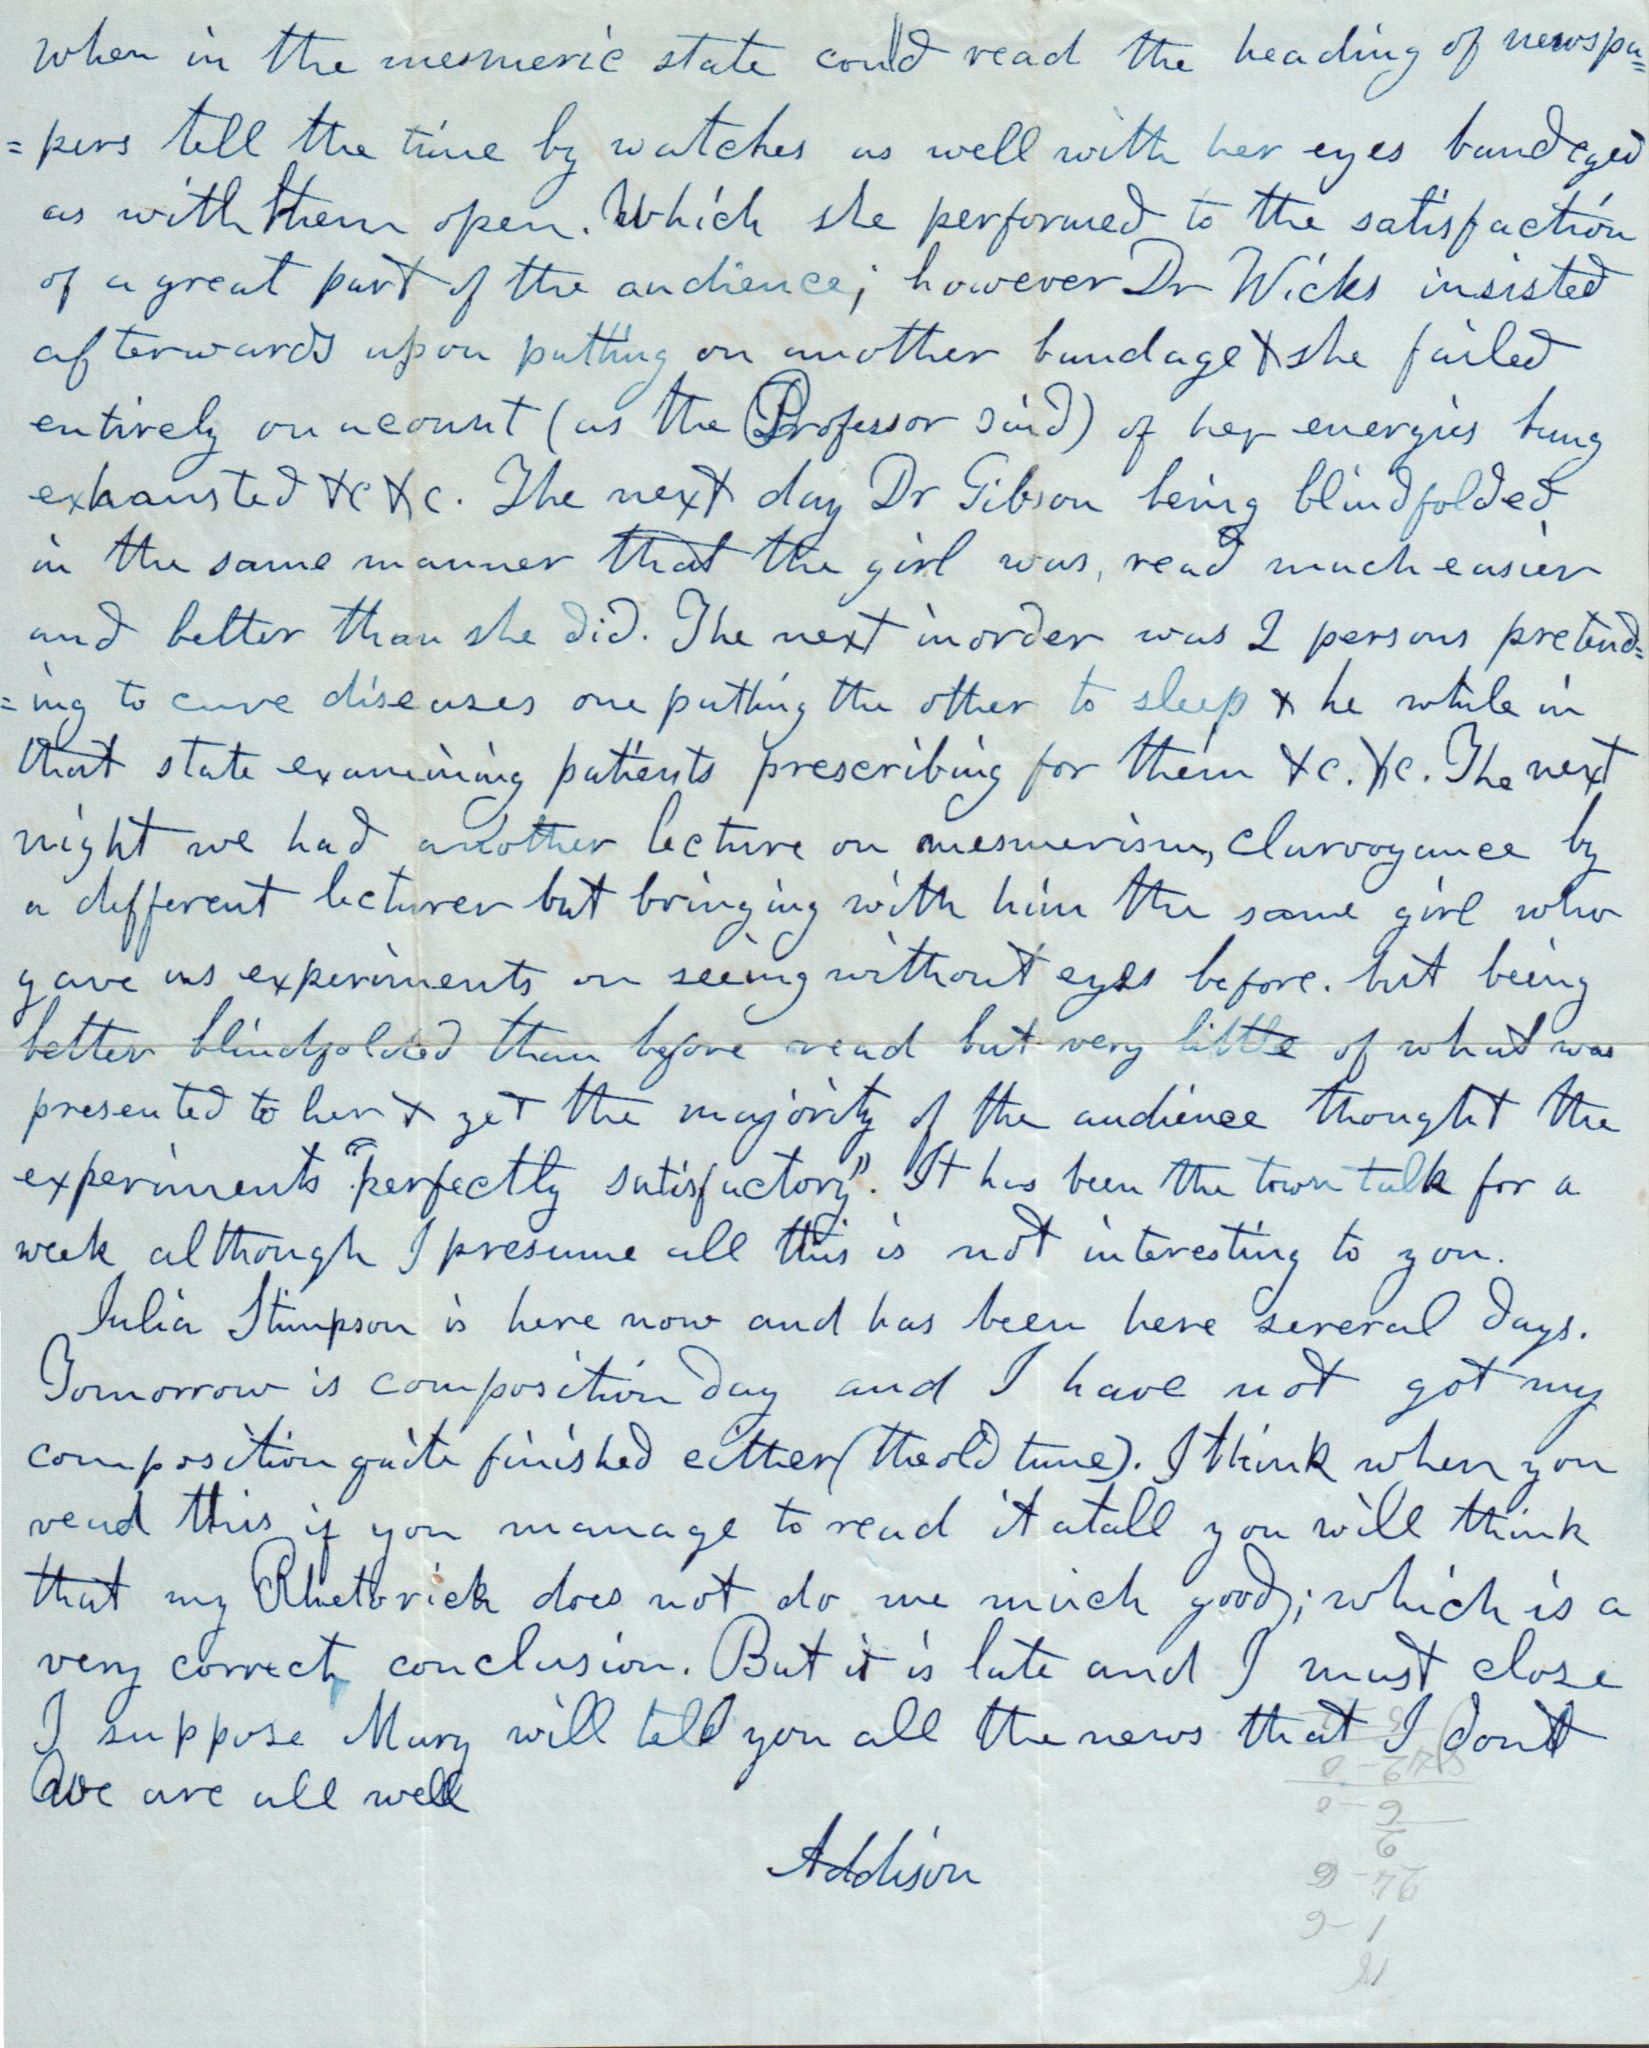 when in the mesmeric state could read the heading of newspa=
=pers tell the time by watches as well with her eyes bandaged
as with them open. Which she performed to the satisfaction
of a great part of the audience; however Dr Wicks insisted
afterwards upon putting on another bandage & she failed
entirely on acount (as the Professor said) of her energies being
exhausted &c &c. The next day Dr Gibson being blindfolded
in the same manner that the girl was, read much easier
and better than she did. The next in order was 2 persons pretend=
=ing to cure diseases one putting the other to sleep & he while in
that state examining patients prescribing for them &c. &c. The next
night we had another lecture on mesmerism, clarvoyance by
a different lecturer but bringing with him the same girl who
gave us experiments on seeing without eyes before. but being
better blindfolded than before read but very little of what was
presented to her & yet the majority of the audience thought the
experiments "perfectly satisfactory". It has been the town talk for a
week although I presume all this is not interesting to you.
Julia Stimpson is here now and has been here several days.
Tomorrow is composition day and I have not got my
composition quite finished either (the old tune). I think when you
read this if you manage to read it at all you will think
that my Rhetorick does not do me much good; which is a
very correct conclusion. But it is late and I must close
I suppose Mary will tell you all the news that I dont
We are all well
Addison